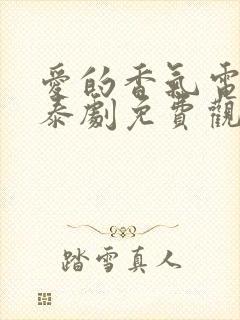 愛的香氣電
泰劇免費觀
踏雪真人